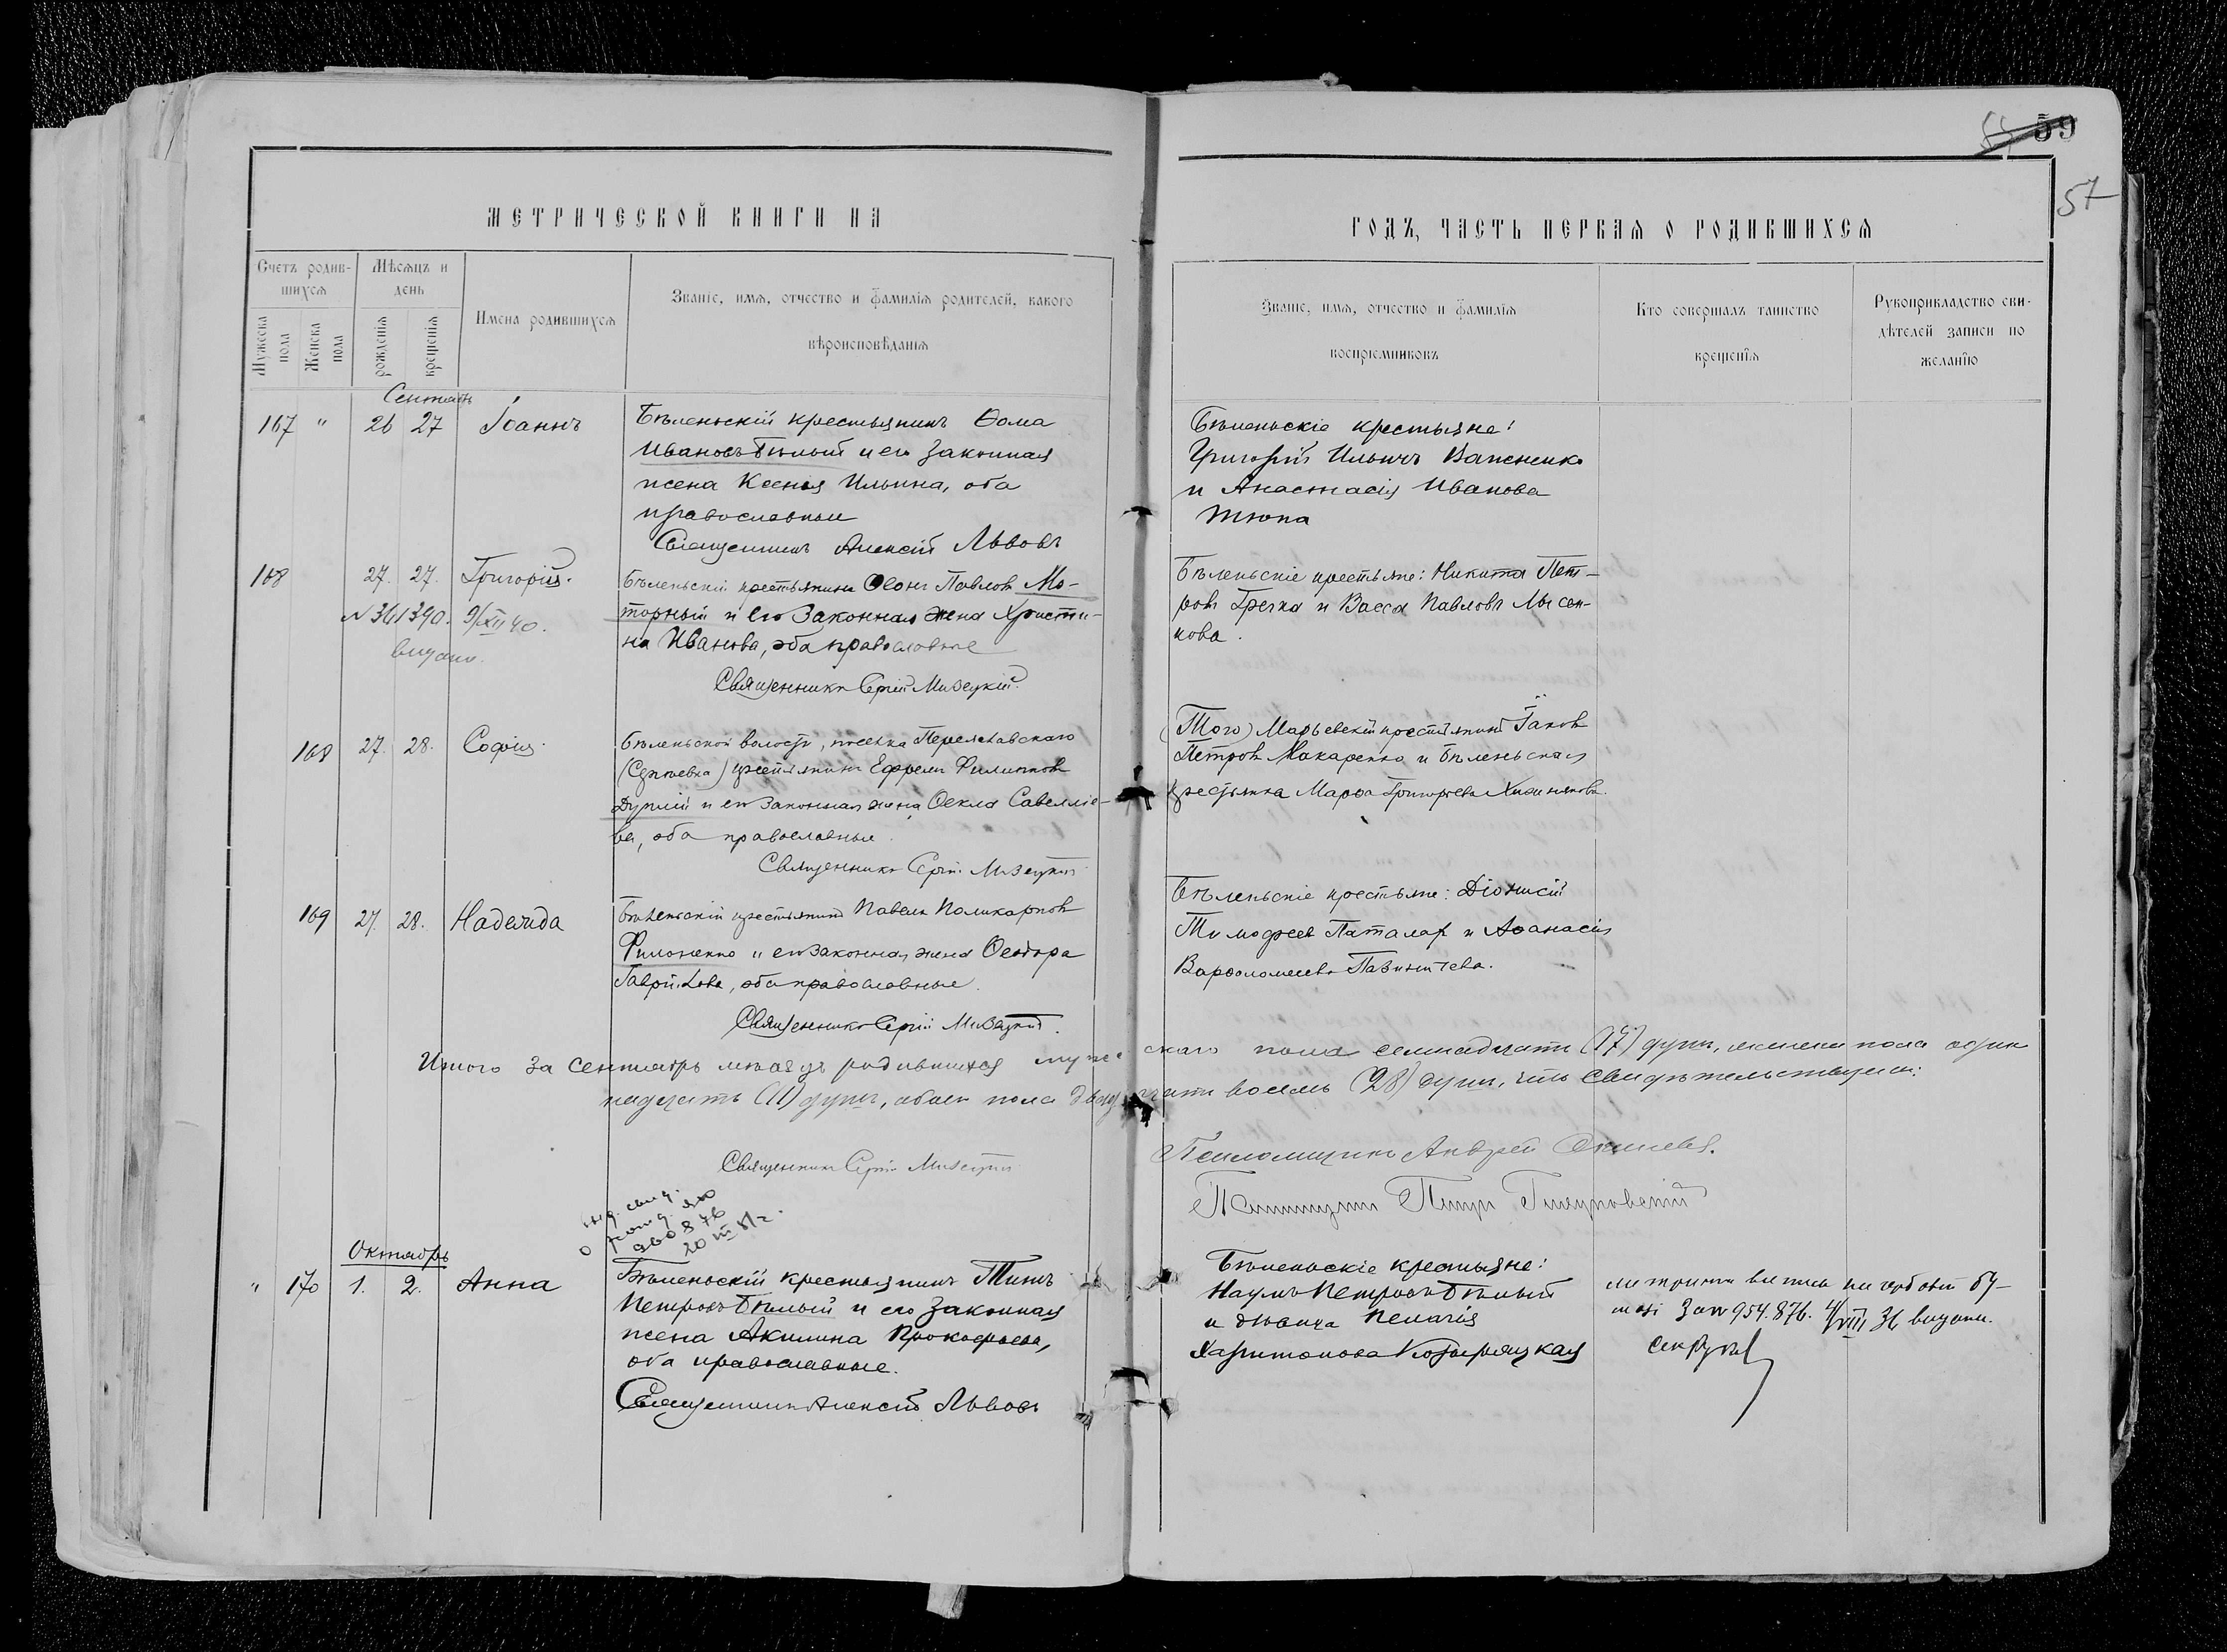 59
57
МЕТРИЧЕСКОЙ КНИГИ НА
ГОДЪ, ЧАСТЬ ПЕРВАЯ О РОДИВШИХСЯ
Счетъ родившихся
Мѣсяцъ и день
Мужеска пола
Женска пола
рожденія
крещенія
Имена родившихся
Званіе, имя, отчество и фамилія родителей, какого
вѣроисповѣданія
Званіе, имя, отчество и фамилія
воспріемниковъ
Кто совершалъ таинство
крещенія
Рукоприкладство сви-
дѣтелей записи по
желанію
Сентябрь
167 " 26 27 Іоаннъ
Бѣленьскій крестьянинъ Ѳома
Ивановъ Бѣлый и его законная
жена Ксенія Ильина, оба
православные
Священникъ Алексій Львовъ
Бѣленьскіе крестьяне:
Григорій Ильичъ
и Анастасія Иванова
Тюпа
168 27. 27. Григорій.
N 361390. 9/XII 40.
видано.
Бѣленьскій крестьянинъ Павлов Мо-
торный и его законная жена Христи-
на Иванова, оба православные
Священникъ Сергій Мизецкій.
Бѣленьскіе крестьяне: Никита Пет-
ровъ Гречка и Васса Павлова Лысен-
кова.
168 27. 28. Софія.
Бѣленьской волости, поселка Переяславскаго
(Сергѣевка) крестьянинъ Ефремъ Филиппов
и его законная жена Ѳекла Савеліе-
ва, оба православные.
Священникъ Сергій Мизецкій
(Того) Марьевскій крестьянинъ Іаков
Петров Макаренко и Бѣленьская
крестьянка Марѳа Григорьева
169 27. 28. Надежда
Бѣленьскій крестьянинъ Павелъ Поликарпов
Филоненко и его законная жена Ѳеодора
Гаврилова, оба православные.
Священникъ Сергій Мизецкій.
Бѣленьскіе крестьяне: Діонисій
Тимофеев Паталах и Аѳанасія
Варѳоломеева
Итого за сентябрь мѣсяцъ родившихся мужескаго пола семнадцать (17) душъ, женска пола один
надцать (11) душъ, обоего пола двадцать восемь (28) душъ, что свидѣтельствуемъ:
Священникъ Сергій Мизецкій
Псаломщикъ Андрей
Псаломщикъ Петръ
960876
20 III 51г.
Октябрь
" 170 1. 2. Анна
Бѣленьскій крестьянинъ Титъ
Петровъ Бѣлый и его законная
жена Акилина Прокофьева,
оба православные.
Священникъ Алексій Львовъ
Бѣленьскіе крестьяне:
Наумъ Петровъ Бѣлый
и дѣвица Пелагія
Харитонова
на гербовій бу-
мазі за № 954.876. 4/VIII 36 видани.